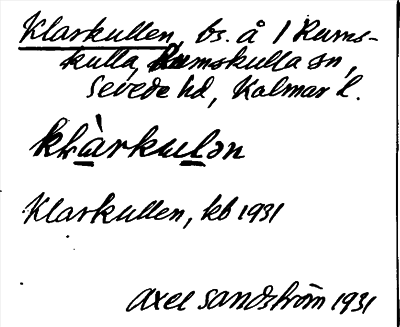 Klarkullen, bs. å 1 Rums-
kulla, Rumskulla sn,
Sevede hd, Kalmar l.
klàrkulən
Klarkullen, kb 1931
Axel Sandström 1931